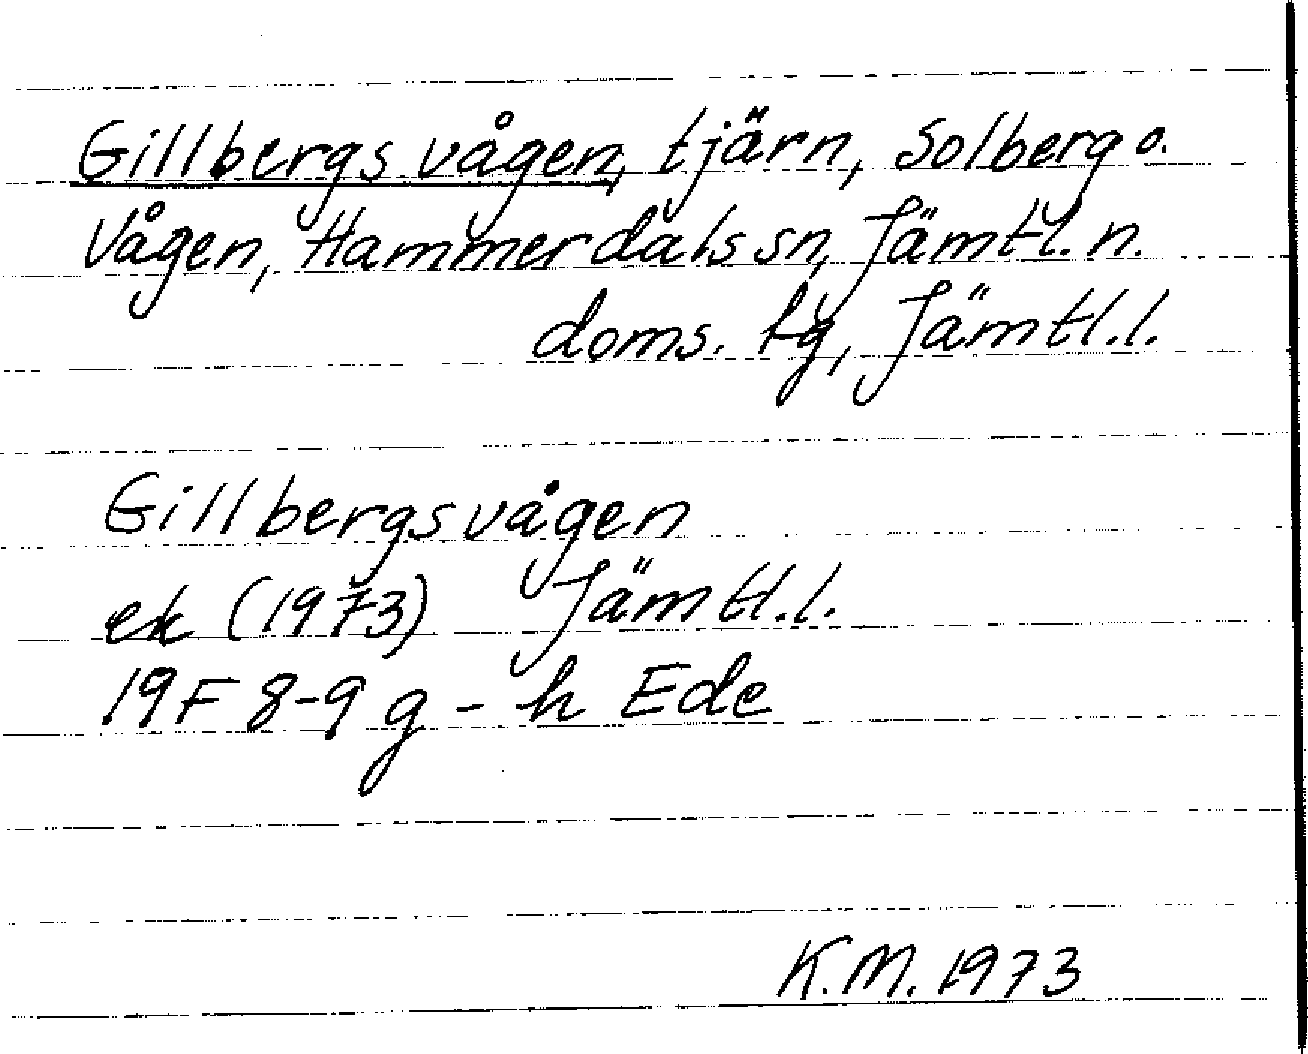 Gillbergsvågen, tjärn, Solberg o.
Vågen, Hammerdals sn, Jämtl. n.
doms. tg, Jämtl.l.
Gillbergsvågen
ek (1973) Jämtl.l.
19F 8-9 g - h Ede
K.M. 1973